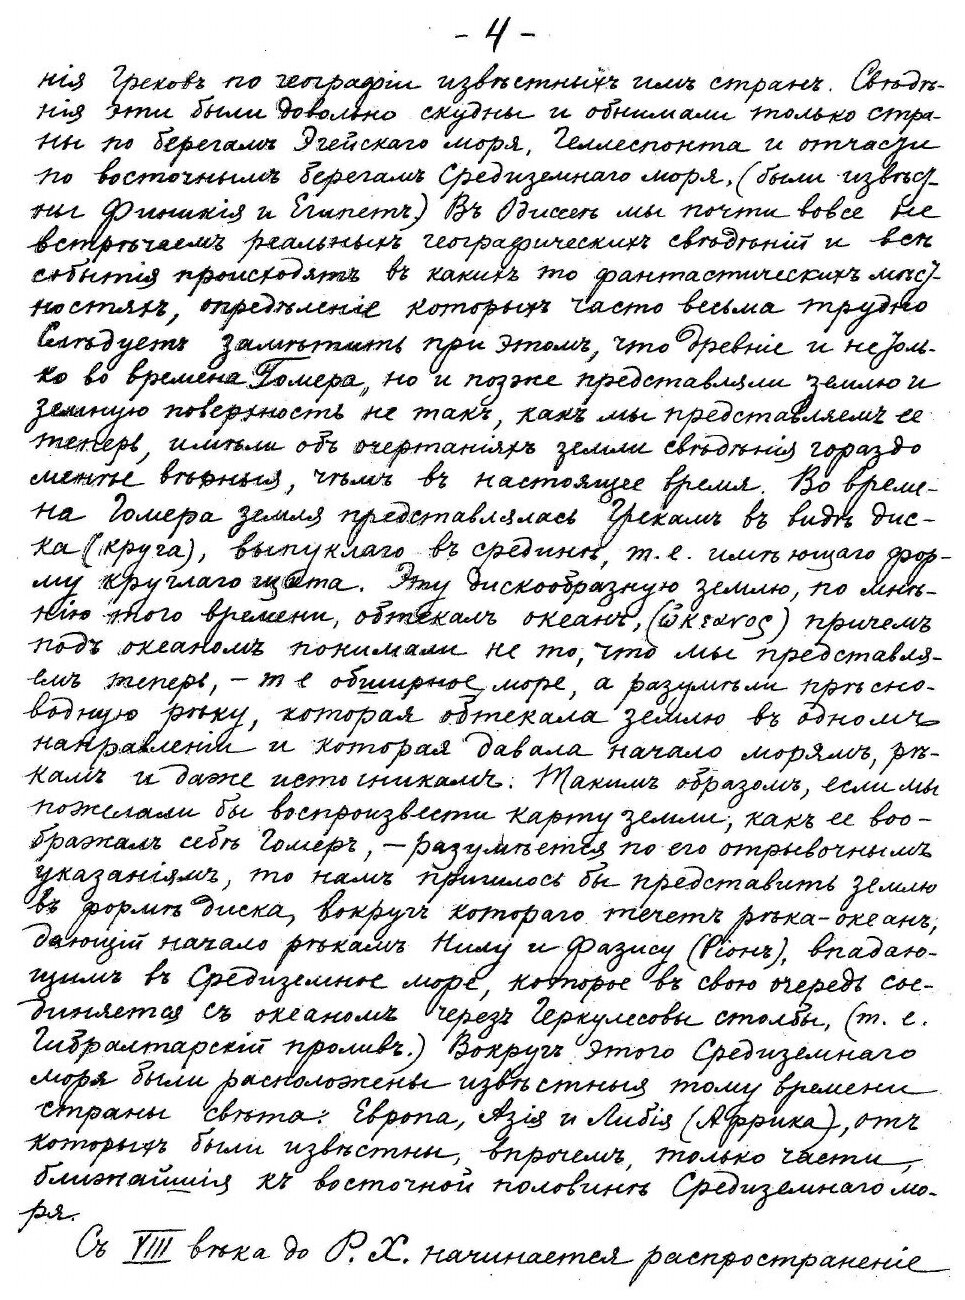 - 4 -
нія Грековъ по географіи извѣстныхъ имъ странъ. Свѣдѣ-
нія эти были довольно скудны и обнимали только стра-
ны по берегамъ Эгейскаго моря, Геллеспонта и отчасти
по восточнымъ берегамъ Средиземнаго моря, (были извѣст-
ны Финикія и Египетъ) Въ Одиссеѣ мы почти вовсе не
встрѣчаемъ реальныхъ географическихъ свѣдѣній и всѣ
событія происходятъ въ какихъ то фантастическихъ мѣст-
ностяхъ, опредѣленіе которыхъ часто весьма трудно
Слѣдуетъ замѣтить при этомъ, что древніе и не толь-
ко во времена Гомера, но и позже представляли землю и
земную поверхность не такъ, какъ мы представляемъ ее
теперь, имѣли объ очертаніяхъ земли свѣдѣнія гораздо
менѣе вѣрныя, чѣмъ въ настоящее время. Во време-
на Гомера земля представлялась Грекамъ въ видѣ дис-
ка (круга), выпуклаго въ срединѣ, т. е. имѣющаго фор-
му круглаго щита. Эту дискообразную землю, по мнѣ-
нію того времени, обтекалъ океанъ, (ὠκεανος) причемъ
подъ океаномъ понимали не то, что мы представля-
емъ теперь, - т е обширное море, а разумѣли прѣсно-
водную рѣку, которая обтекала землю въ одномъ
направленіи и которая давала начало морямъ, рѣ-
камъ и даже источникамъ. Такимъ образомъ, если мы
пожелали бы воспроизвести карту земли, какъ ее воо-
бражалъ себѣ Гомеръ, - разумѣется по его отрывочнымъ
указаніямъ, то намъ пришлось бы представить землю
въ формѣ диска, вокругъ котораго течетъ рѣка-океанъ,
дающій начало рѣкамъ Нилу и Фазису (Ріонъ), впадаю-
щимъ въ Средиземное море, которое въ свою очередь сое-
диняется съ океаномъ черезъ Геркулесовы столбы, (т. е.
Гибралтарскій проливъ.) Вокругъ этого Средиземнаго
моря были расположены извѣстныя тому времени
страны свѣта: Европа, Азія и Либія (Африка), отъ
которыхъ были извѣстны, впрочемъ, только части,
ближайшія къ восточной половинѣ Средиземнаго мо-
ря.
Съ VIII вѣка до Р. Х. начинается распространеніе